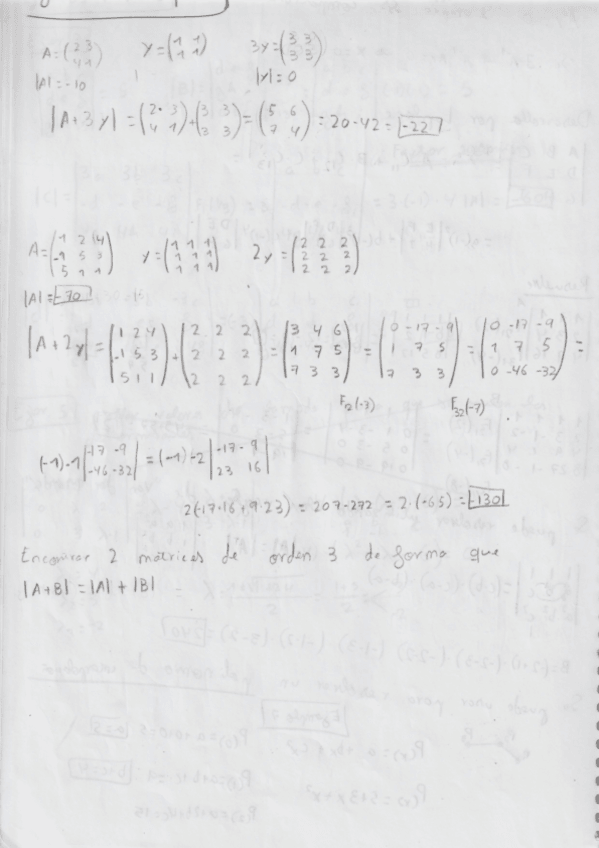 A = (2 3 / 4 1)   y = (1 1 / 1 1)   3y = (3 3 / 3 3)
|A| = -10   |y| = 0
|A+3y| = (2 3 / 4 1) + (3 3 / 3 3) = (5 6 / 7 4) = 20-42 = -22
A = (1 2 4 / -1 5 3 / 5 1 1)   y = (1 1 1 / 1 1 1 / 1 1 1)   2y = (2 2 2 / 2 2 2 / 2 2 2)
|A| = -70
|A+2y| = (1 2 4 / -1 5 3 / 5 1 1) + (2 2 2 / 2 2 2 / 2 2 2) = (3 4 6 / 1 7 5 / 7 3 3) = (0 -17 -9 / 1 7 5 / 7 3 3) = (0 -17 -9 / 1 7 5 / 0 -46 -32) =
F12(-3)   F32(-7)
(-1)·1 |-17 -9 / -46 -32| = (-1)·-2 |-17 -9 / 23 16|
2(-17·16+9·23) = 207-272 = 2·(-65) = -130
Encontrar 2 matrices de orden 3 de forma que
|A+B| = |A| + |B|